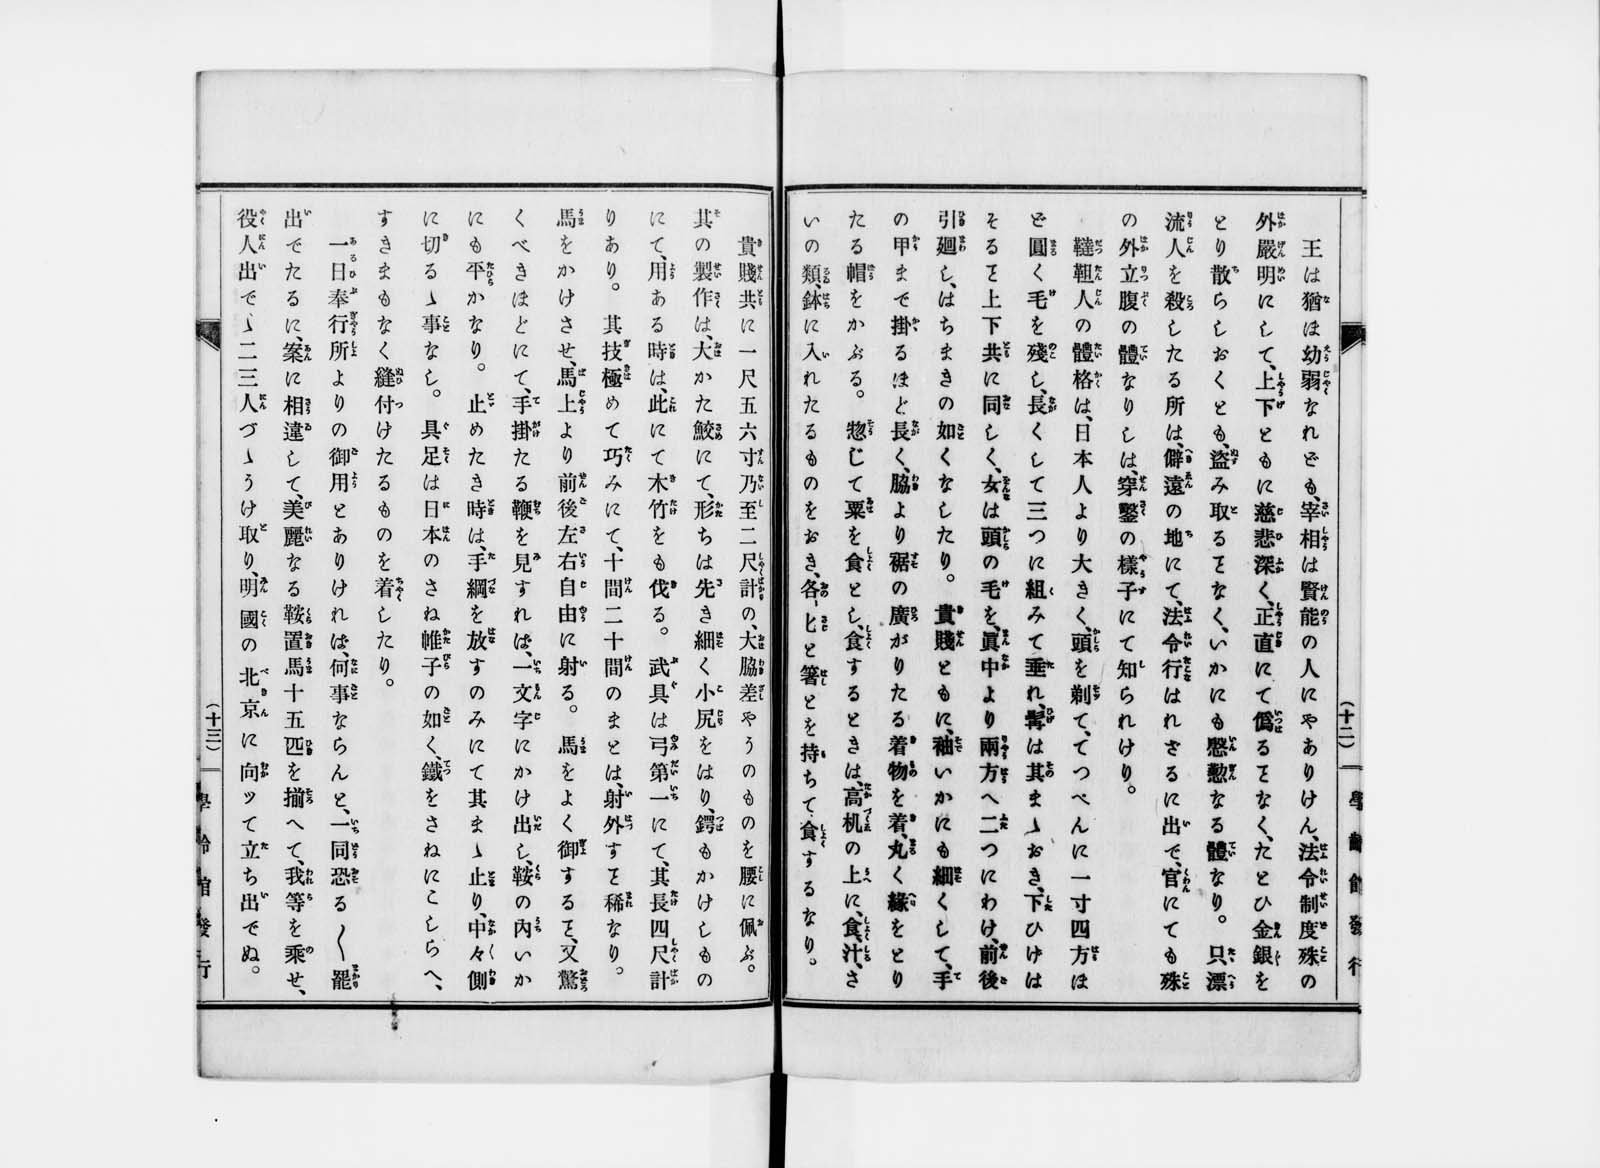 王は猶ほ幼弱なれども、宰相は賢能の人にやありけん、法令制度殊の
外嚴明にして、上下ともに慈悲深く、正直にて僞るヿなく、たとひ金銀を
とり散らしおくとも、盜み取るヿなく、いかにも慇懃なる體なり。只漂
流人を殺したる所は、僻遠の地にて、法令行はれざるに出で、官にても殊
の外立腹の體なりしは、穿鑿の樣子にて知られけり。
韃靼人の體格は、日本人より大きく、頭を剃て、てつぺんに一寸四方ほ
ど圓く毛を殘し、長くして三つに組みて垂れ、髯は其まゝおき、下ひげは
そるヿ上下共に同しく、女は頭の毛を、眞中より兩方へ二つにわけ、前後
引廻し、はちまきの如くなしたり。貴賤ともに、袖いかにも細くして、手
の甲まで掛るほど長く、脇より裾の廣がりたる着物を着、丸く緣をとり
たる帽をかぶる。惣じて粟を食とし、食するときは、高机の上に、食、汁、さ
いの類、鉢に入れたるものをおき、各〻匕と箸とを持ちて食するなり。
（十二）
學齡館發行
貴賤共に一尺五六寸乃至二尺計の、大脇差やうのものを腰に佩ぶ。
其の製作は、大かた鮫にて、形ちは先き細く小尻をはり、鍔もかけしもの
にて、用ある時は、此にて木竹をも伐る。武具は弓第一にて、其長四尺計
りあり。其技極めて巧みにて、十間二十間のまとは、射外すヿ稀なり。
馬をかけさせ、馬上より前後左右自由に射る。馬をよく御するヿ、又驚
くべきほどにて、手掛たる鞭を見すれば、一文字にかけ出し、鞍の內いか
にも平かなり。止めたき時は、手綱を放すのみにて其まゝ止り、中々側
に切るゝ事なし。具足は日本のさね帷子の如く、鐵をさねにこしらへ、
すきまもなく縫付けたるものを着したり。
一日奉行所よりの御用とありければ、何事ならんと、一同恐る〳〵罷
出でたるに、案に相違して、美麗なる鞍置馬十五匹を揃へて、我等を乘せ、
役人出でゝ二三人づゝうけ取り、明國の北京に向ッて立ち出でぬ。
（十三）
學齡館發行